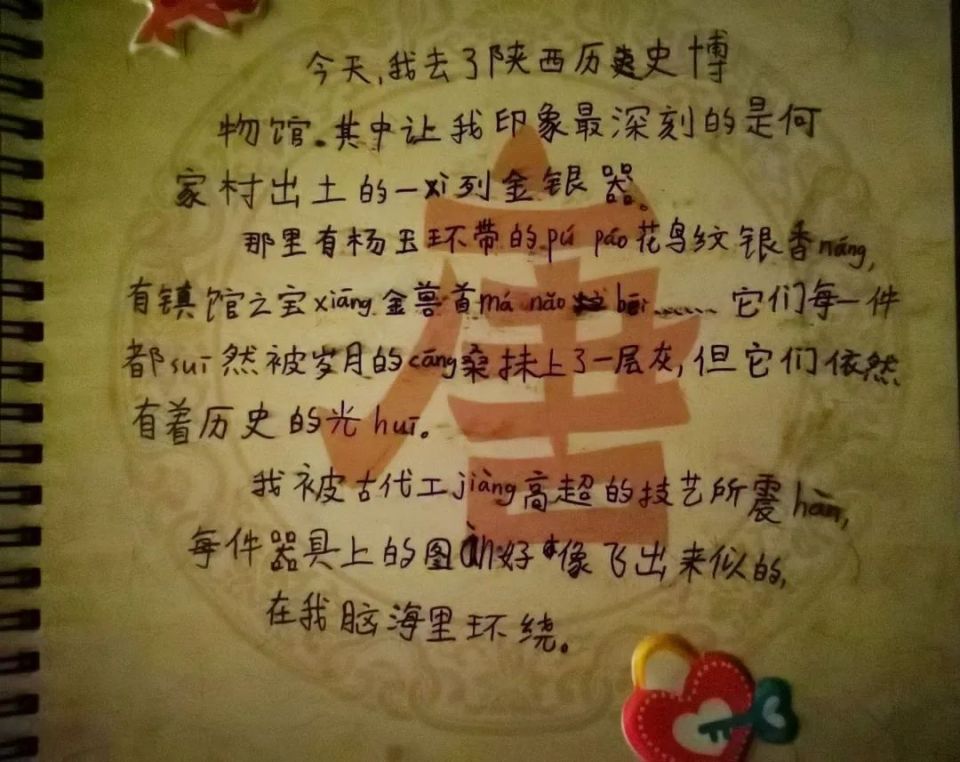 今天,我去了陕西历史博
物馆。其中让我印象最深刻的是何
家村出土的一xì列金银器。
那里有杨玉环带的pú páo花鸟纹银香náng,
有镇馆之宝xiāng金兽首má nǎo bēi……它们每一件
都suī然被岁月的cāng桑抹上了一层灰,但它们依然
有着历史的光huī。
我被古代工jiàng高超的技艺所震hàn,
每件器具上的图àn好像飞出来似的,
在我脑海里环绕。
唐